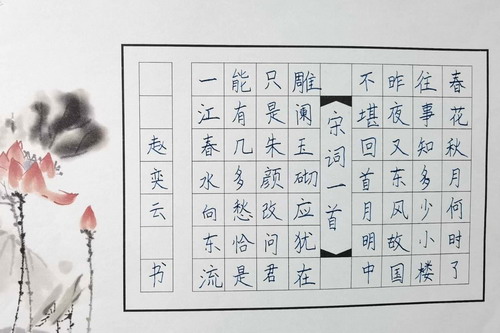 春花秋月何时了
往事知多少小楼
昨夜又东风故国
不堪回首月明中
宋词一首
雕阑玉砌应犹在
只是朱颜改问君
能有几多愁恰是
一江春水向东流
赵奕云 书